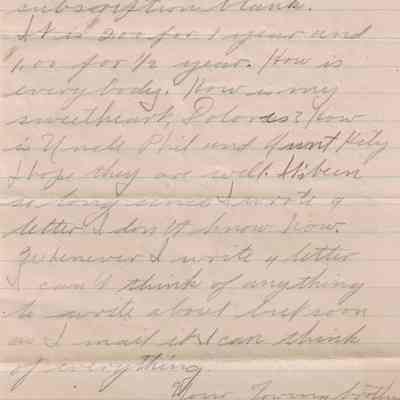 subscription blank.
It is 2.00 for 1 year and
1.00 for 1/2 year. How is
everybody? How is my
sweetheart, Dolores? How
is Uncle Phil and Aunt
I hope they are well. It's been
so long since I wrote a
letter I don't know how.
Whenever I write a letter
I can't think of anything
to write about but soon
as I mail it I can think
of everything.
Your loving brother